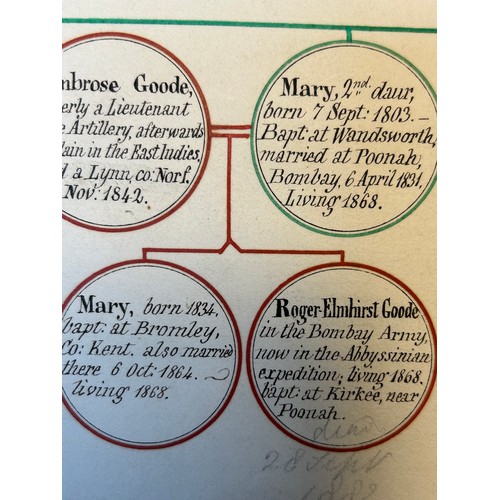 mbrose Goode,
erly a Lieutenant
e Artillery, afterwards
lain in the East Indies,
d a Lynn, co: Norf.
Nov: 1842.
Mary, 2nd. daur,
born 7 Sept: 1803. –
Bapt: at Wandsworth,
married at Poonah,
Bombay, 6 April 1831.
Living 1868.
Mary, born 1834.
bapt: at Bromley,
Co: Kent. also married
there 6 Oct: 1864.
living 1868.
Roger-Elmhirst Goode
in the Bombay Army,
now in the Abyssinian
expedition; living 1868.
bapt: at Kirkee, near
Poonah.
28 Sept